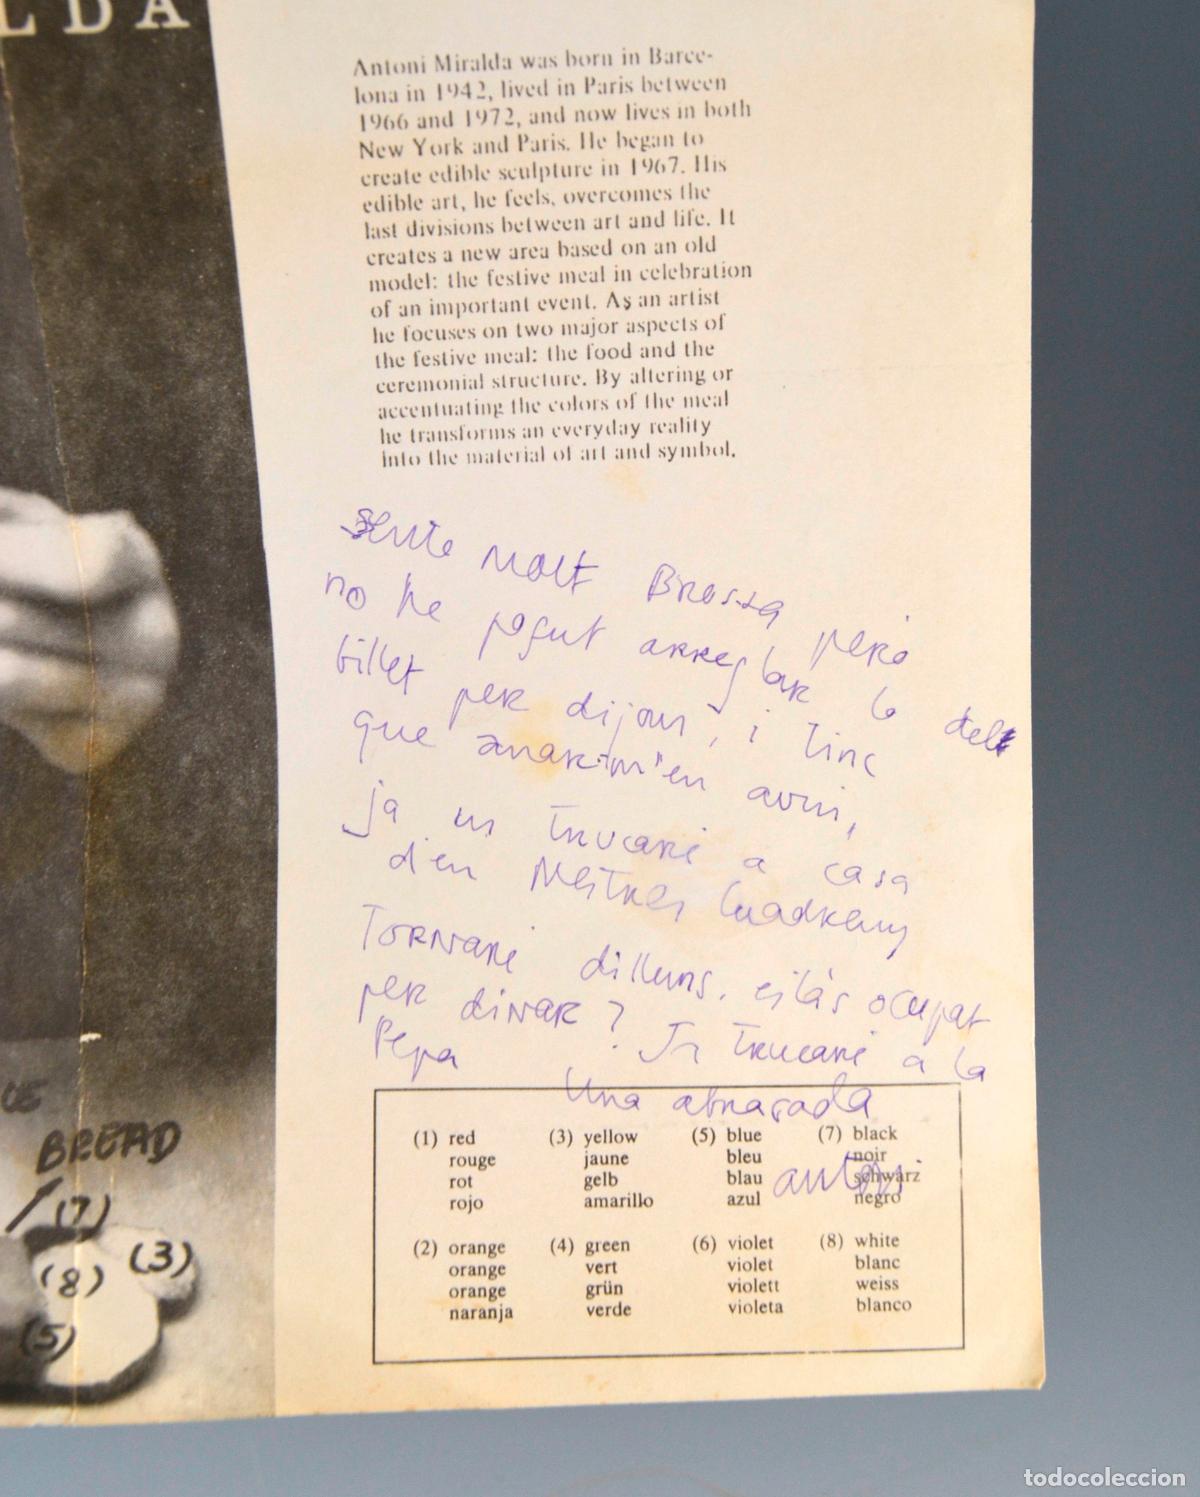 LDA
Antoni Miralda was born in Barce-
lona in 1942, lived in Paris between
1966 and 1972, and now lives in both
New York and Paris. He began to
create edible sculpture in 1967. His
edible art, he feels, overcomes the
last divisions between art and life. It
creates a new area based on an old
model: the festive meal in celebration
of an important event. As an artist
he focuses on two major aspects of
the festive meal: the food and the
ceremonial structure. By altering or
accentuating the colors of the meal
he transforms an everyday reality
into the material of art and symbol.
molt Brossa però
no he pogut arreglar lo del
billet per dijous, i tinc
que anar-m'en avui,
ja us trucaré a casa
d'en Mestres Cuadreny
Tornaré dilluns. estàs ocupat
per dinar? Ja trucaré a la
Pepa
Una abraçada
antoni
BREAD
(7)
(3)
(8)
(5)
(1) red
rouge
rot
rojo
(3) yellow
jaune
gelb
amarillo
(5) blue
bleu
blau
azul
(7) black
noir
schwarz
negro
(2) orange
orange
orange
naranja
(4) green
vert
grün
verde
(6) violet
violet
violett
violeta
(8) white
blanc
weiss
blanco
todocoleccion